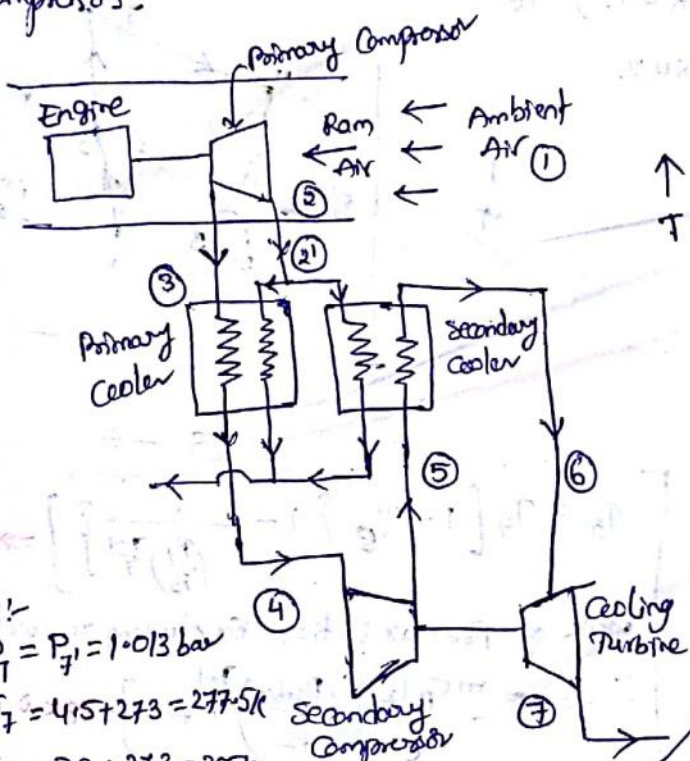 Primary Compressor
Engine
Ram
Air
Ambient
Air ①
②
②'
↑
T
③
Primary
Cooler
Secondary
Cooler
⑤
⑥
④
Cooling
Turbine
= P7' = 1.013 bar
7 = 4.5+273 = 277.5K
Secondary
Compressor
⑦